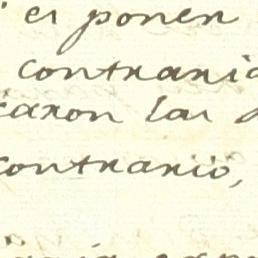 es ponen
contrario
caron las
contrario,